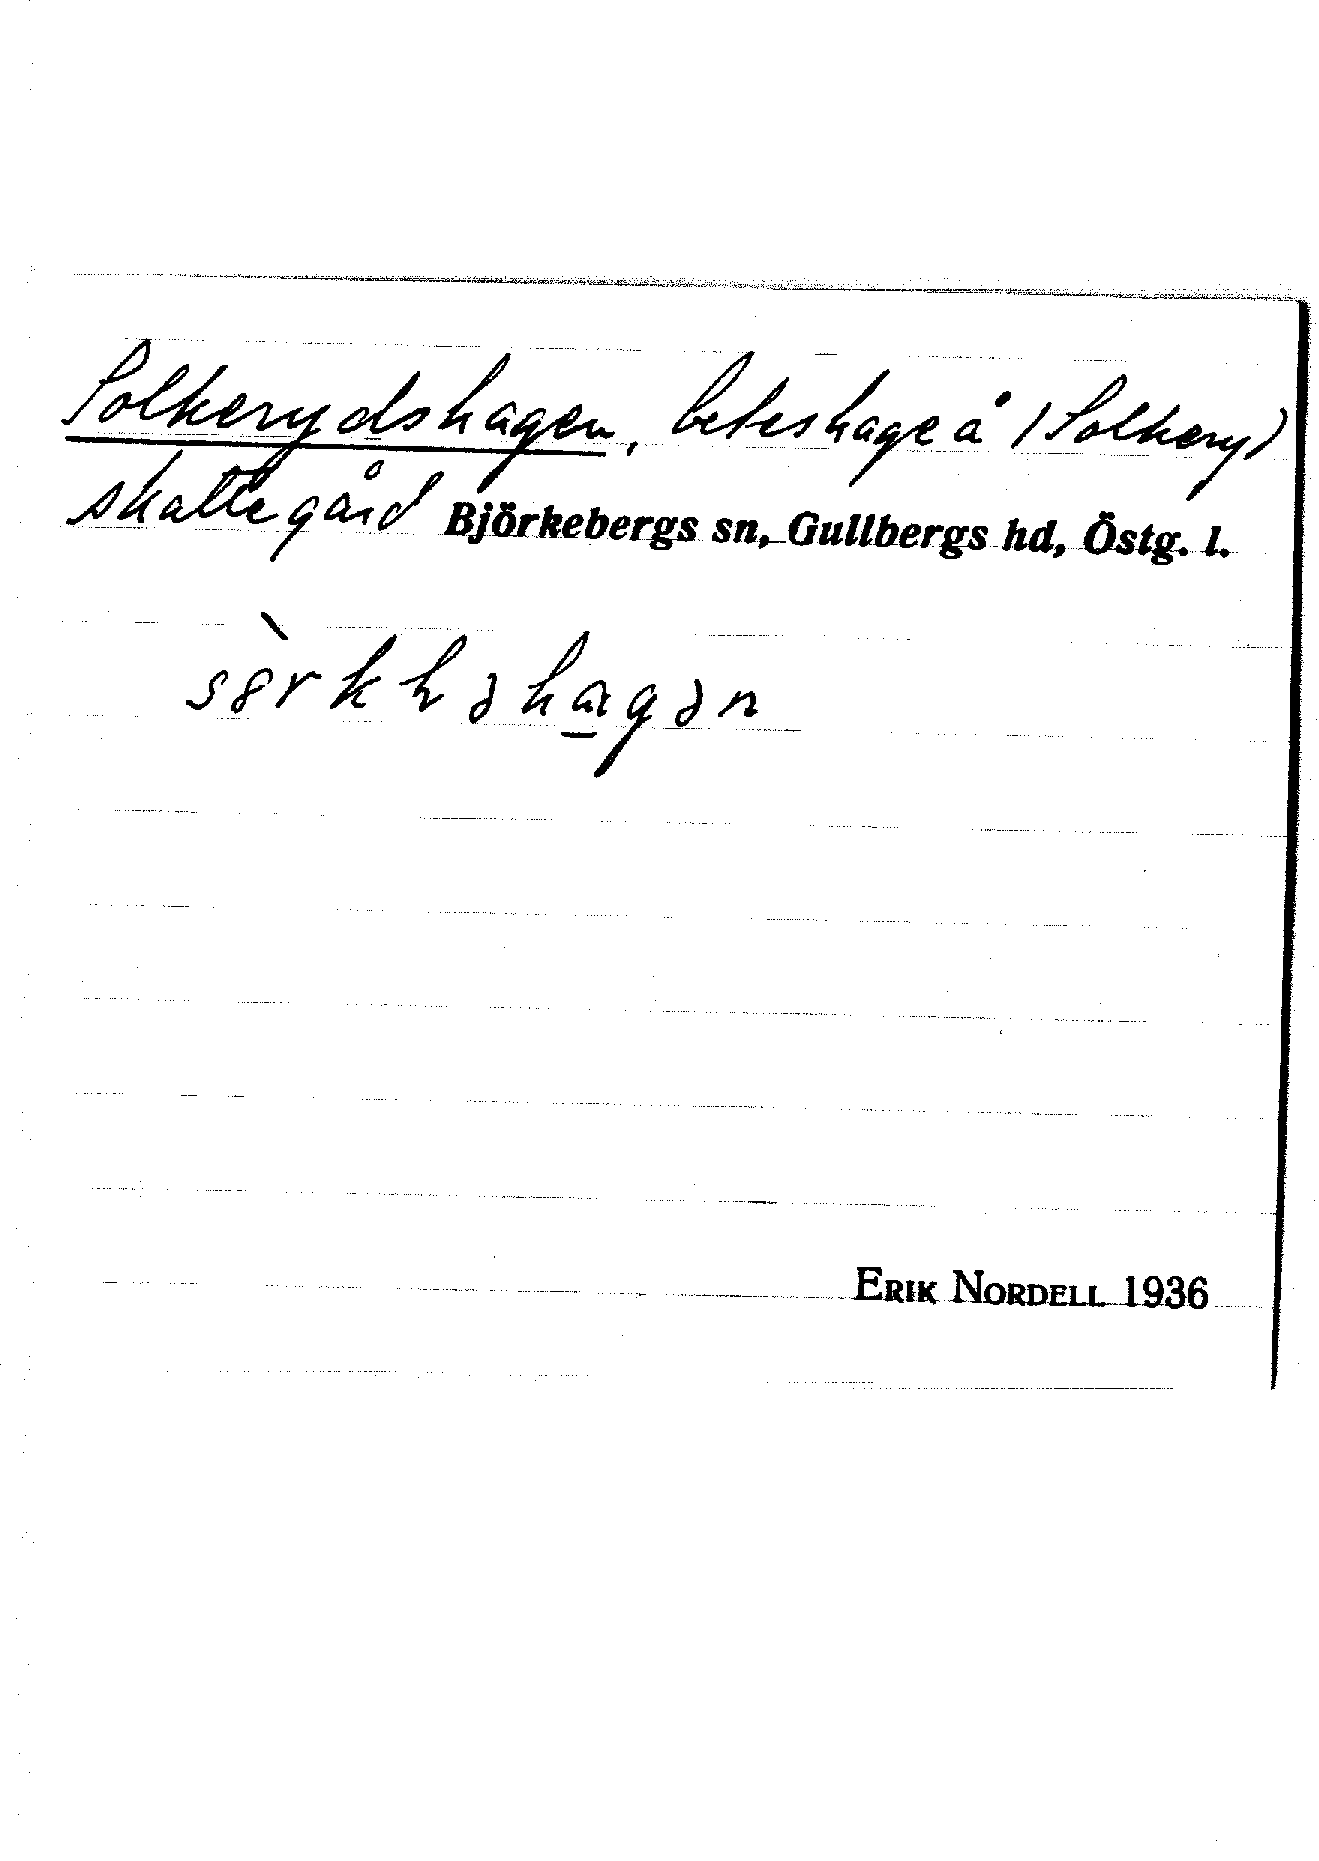 Solkerydshagen, beteshage å (Solkery)
skattegård Björkebergs sn, Gullbergs hd, Östg. l.
ERIK NORDELL 1936